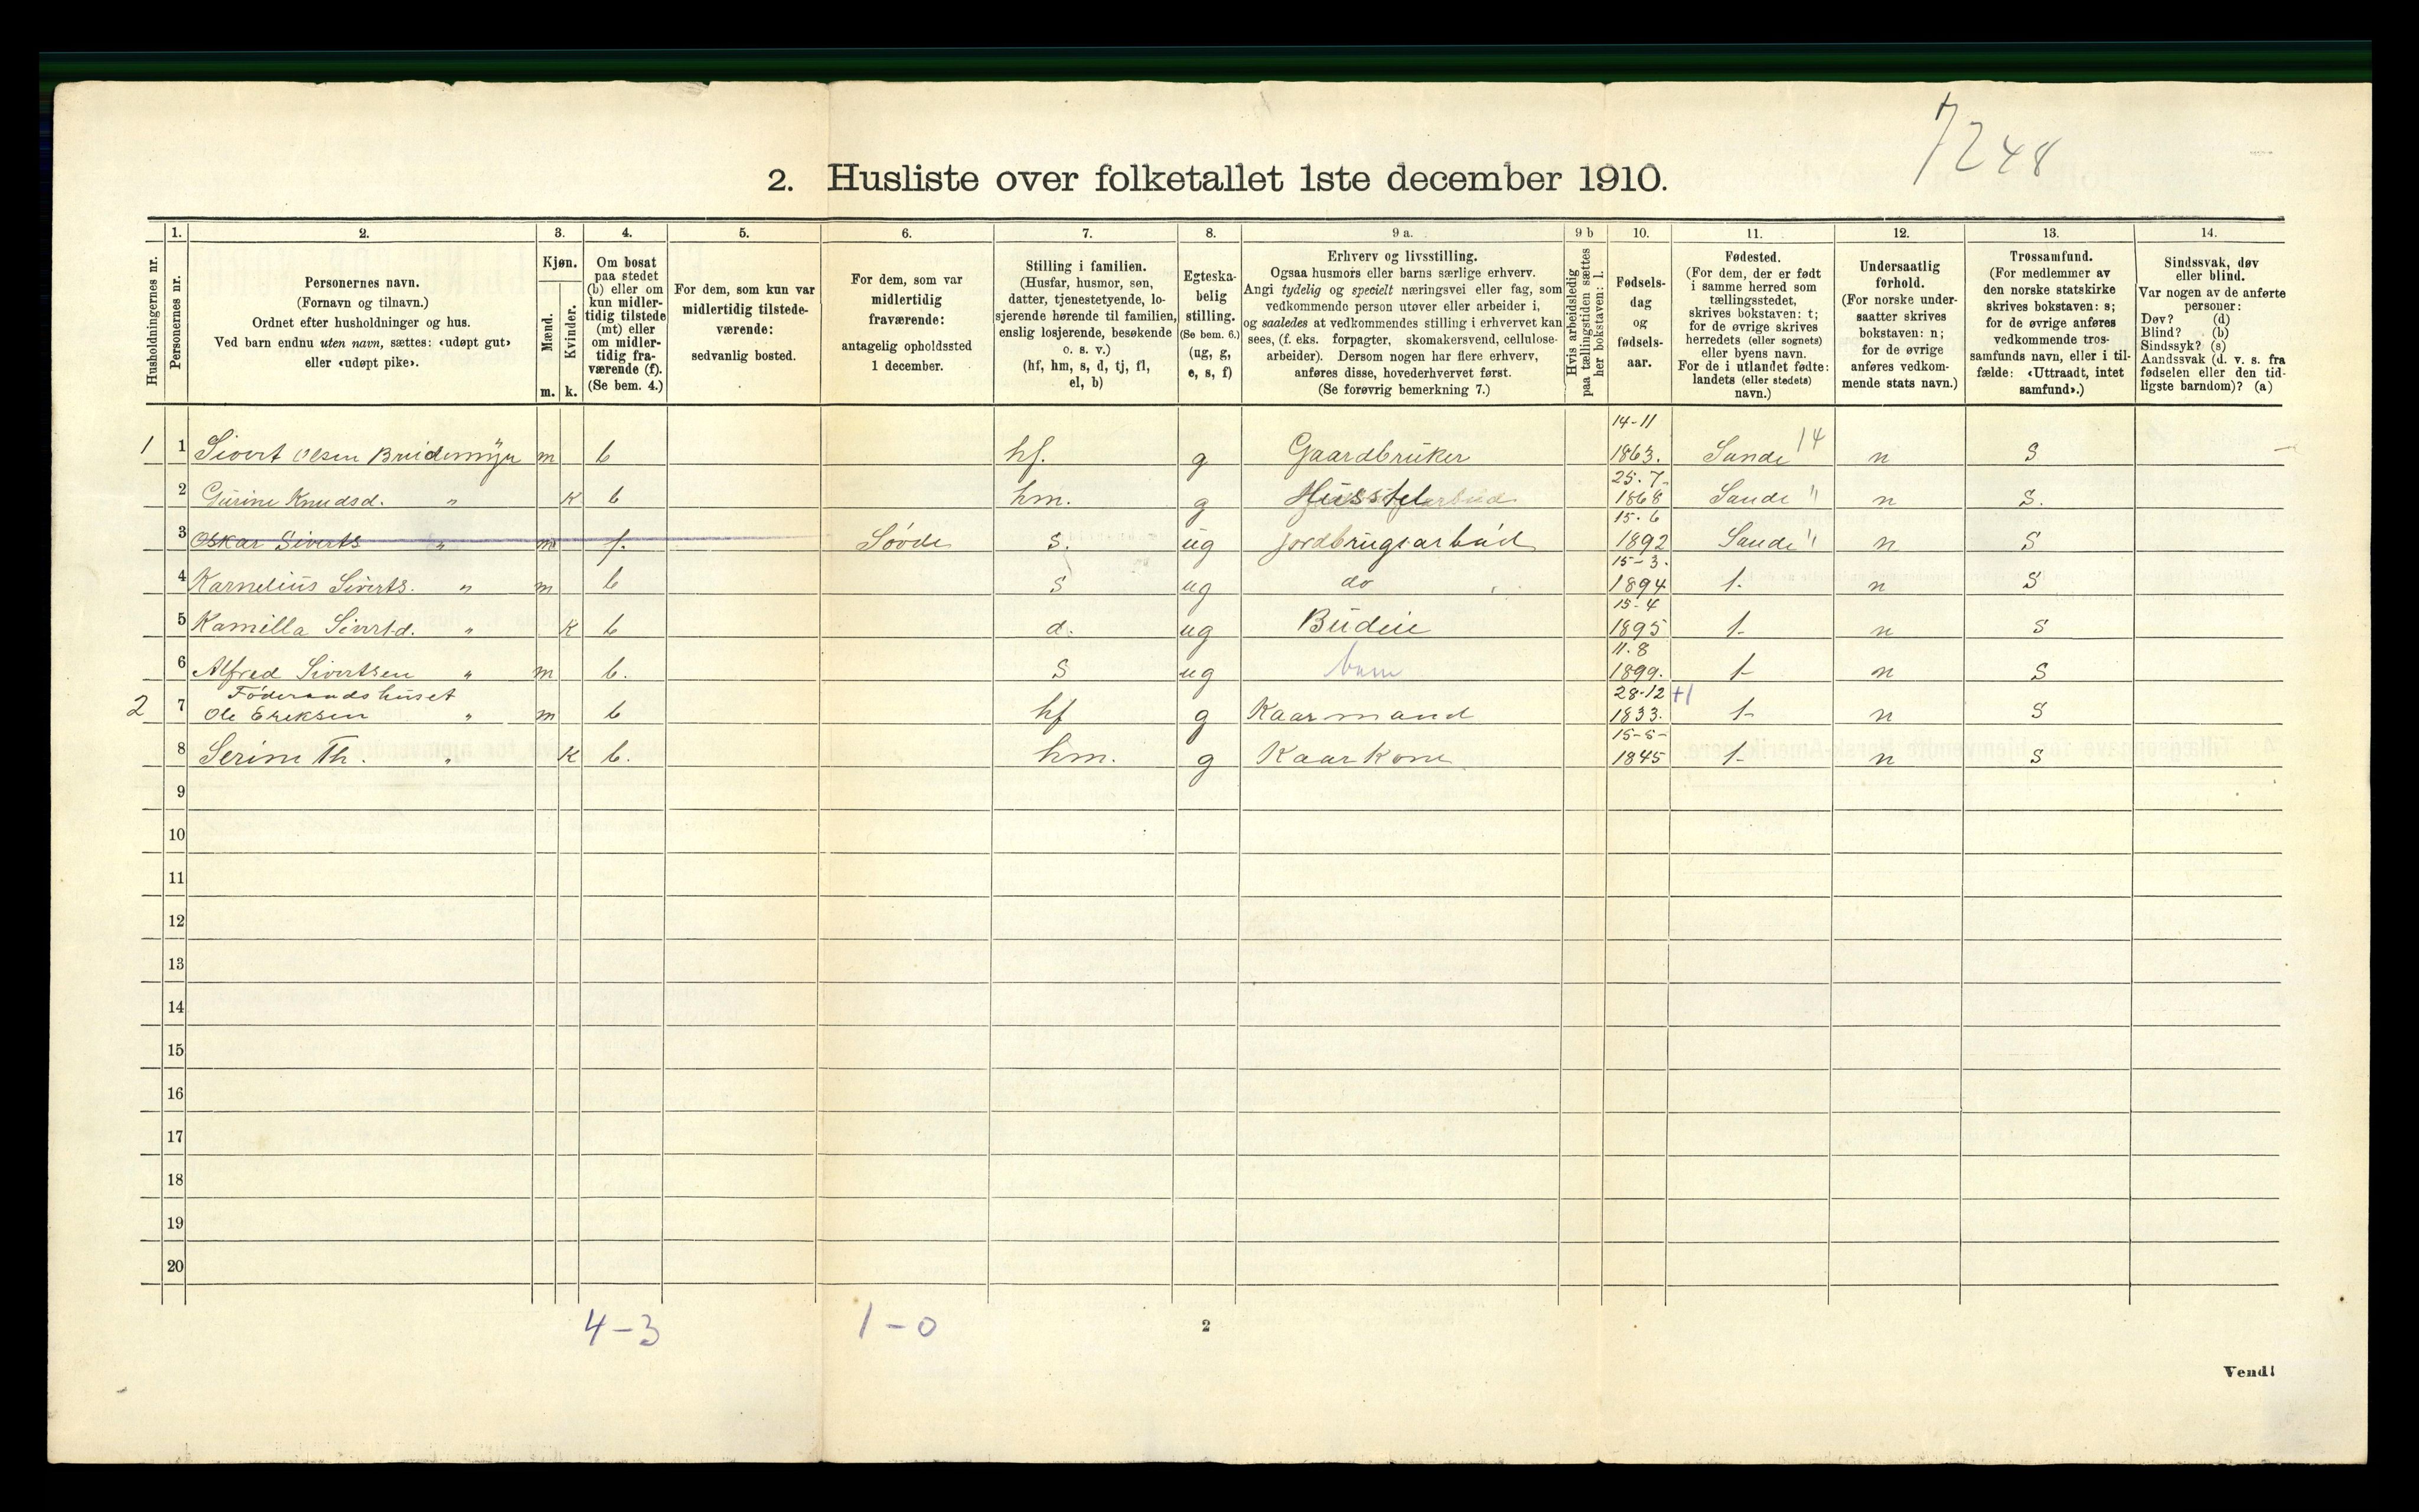 7248
2. Husliste over folketallet 1ste december 1910.
Husholdningernes nr.
1.
Personernes nr.
2.
Personernes navn.
(Fornavn og tilnavn.)
Ordnet efter husholdninger og hus.
Ved barn endnu uten navn, sættes: «udøpt gut»
eller «udøpt pike».
3.
Kjøn.
Mænd.
Kvinder.
m. k.
4.
Om bosat
paa stedet
(b) eller om
kun midler-
tidig tilstede
(mt) eller
om midler-
tidig fra-
værende (f).
(Se bem. 4.)
5.
For dem, som kun var
midlertidig tilstede-
værende:
sedvanlig bosted.
6.
For dem, som var
midlertidig
fraværende:
antagelig opholdssted
1 december.
7.
Stilling i familien.
(Husfar, husmor, søn,
datter, tjenestetyende, lo-
sjerende hørende til familien,
enslig losjerende, besøkende
o. s. v.)
(hf, hm, s, d, tj, fl,
el, b)
8.
Egteska-
belig
stilling.
(Se bem. 6.)
(ug, g,
e, s, f)
9 a.
Erhverv og livsstilling.
Ogsaa husmors eller barns særlige erhverv.
Angi tydelig og specielt næringsvei eller fag, som
vedkommende person utøver eller arbeider i,
og saaledes at vedkommendes stilling i erhvervet kan
sees, (f. eks. forpagter, skomakersvend, cellulose-
arbeider). Dersom nogen har flere erhverv,
anføres disse, hovederhvervet først.
(Se forøvrig bemerkning 7.)
9 b
Hvis arbeidsledig
paa tællingstiden sættes
her bokstaven: l.
10.
Fødsels-
dag
og
fødsels-
aar.
11.
Fødested.
(For dem, der er født
i samme herred som
tællingsstedet,
skrives bokstaven: t;
for de øvrige skrives
herredets (eller sognets)
eller byens navn.
For de i utlandet fødte:
landets (eller stedets)
navn.)
12.
Undersaatlig
forhold.
(For norske under-
saatter skrives
bokstaven: n;
for de øvrige
anføres vedkom-
mende stats navn.)
13.
Trossamfund.
(For medlemmer av
den norske statskirke
skrives bokstaven: s;
for de øvrige anføres
vedkommende tros-
samfunds navn, eller i til-
fælde: «Uttraadt, intet
samfund».)
14.
Sindssvak, døv
eller blind.
Var nogen av de anførte
personer:
Døv? (d)
Blind? (b)
Sindssyk? (s)
Aandssvak (d. v. s. fra
fødselen eller den tid-
ligste barndom)? (a)
14-11
1 1 Sivert Olsen m b hf. g Gaardbruker 1863. Sande 14 n S
25.7-
2 Gurine Knudsd. " k b hm. g Husstel 1868 Sande " n S.
15.6
3 Oskar Siverts " m f. Søvde S. ug jordbrugsarbeid 1892 Sande " n S
15-3.
4 Karnelius Siverts. " m b S ug do 1894 t. n S
15-4
5 Kamilla Sivertd. " k b d. ug Budeie 1895 t- n S
11.8
6 Alfred Sivertsen " m b. S ug barn 1899. t- n S
Føderaadshuset 28-12 +1
2 7 Ole Eriksen " m b hf g Kaarmand 1833. t- n S
15-5-
8 Serine Th. " k b. hm. g Kaarkone 1845 t- n S
9
10
11
12
13
14
15
16
17
18
19
20
4-3 1-0 2
Vend!